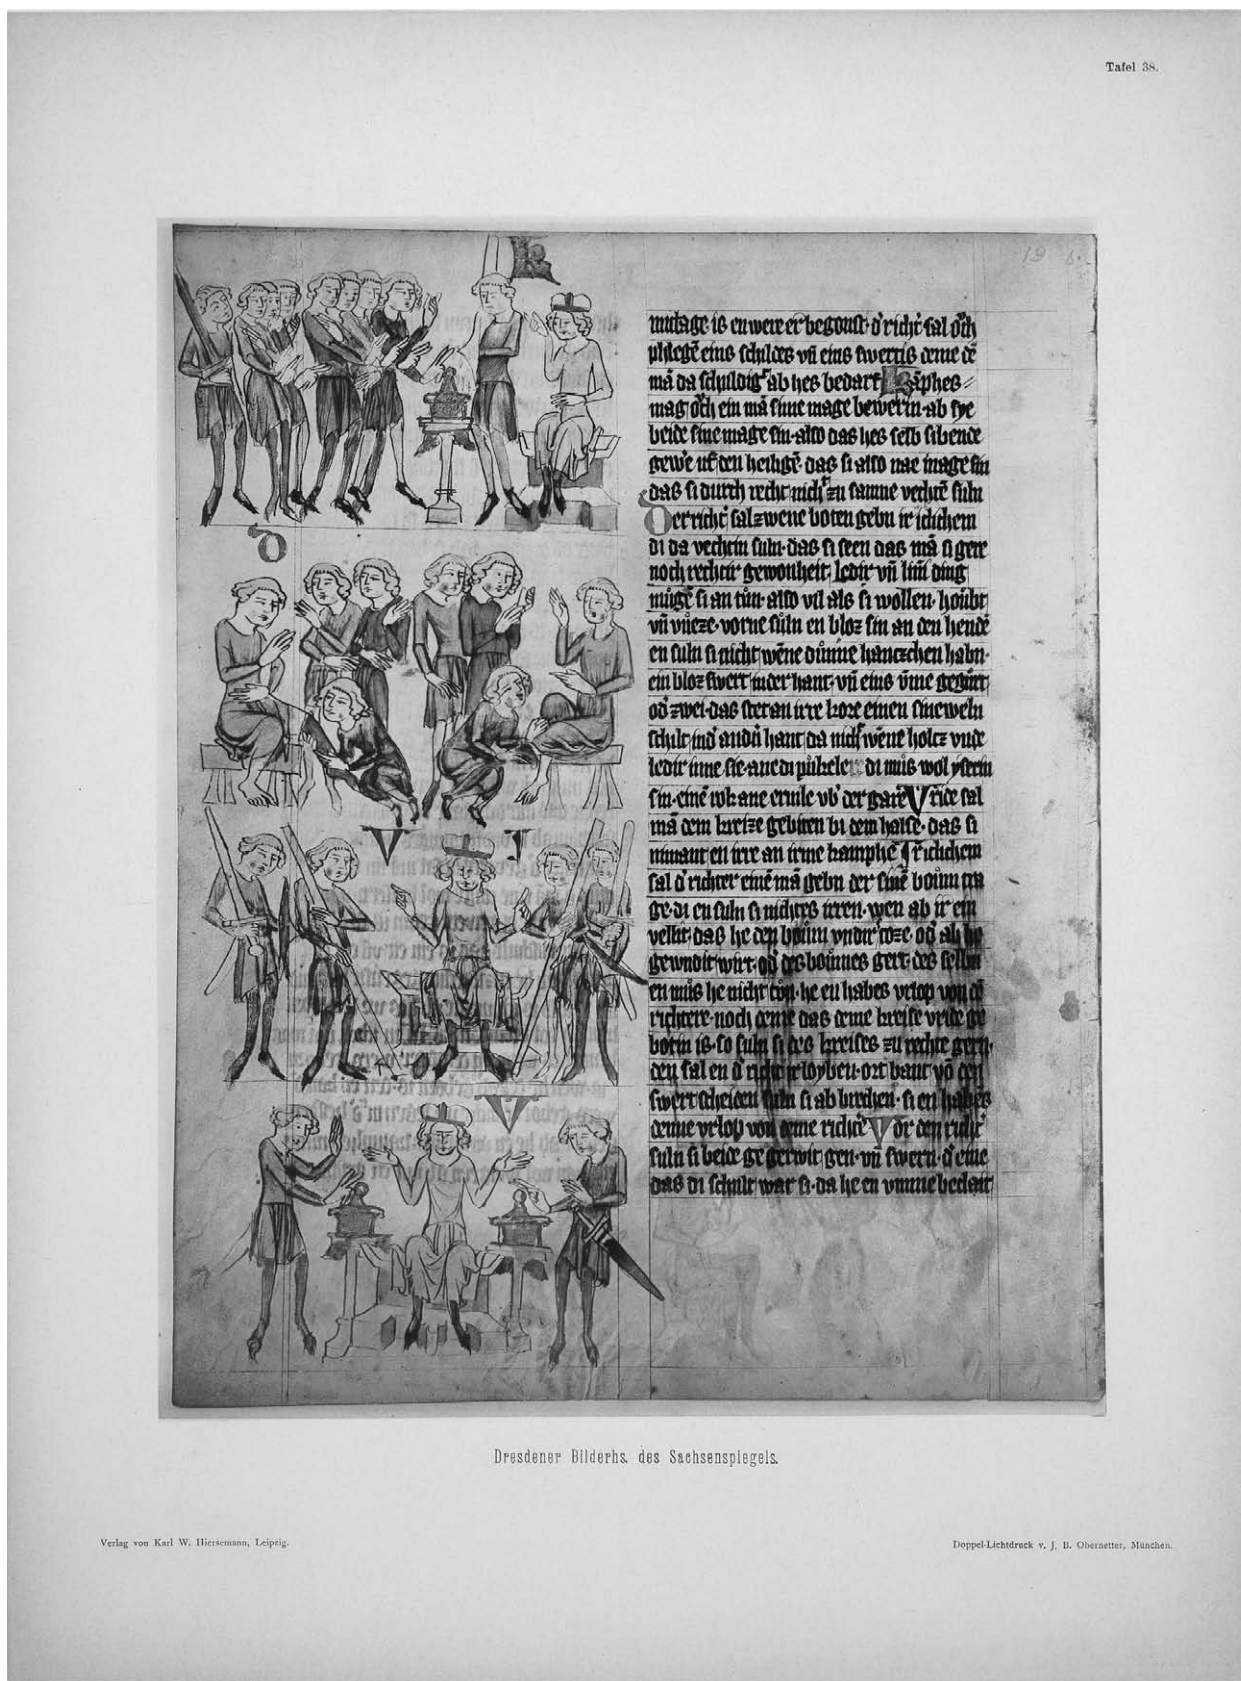 Tafel 38.
19 b.
K
mittage is en were er begonst. d' richt' sal och
phlegē eins schildes vn̄ eins swertis deme dē
mā da schuldig' ab hes bedarf Kāphes
mag och ein mā sime mage bewerin. ab sye
beide sine mage sin. also das hes selb sibende
gewe uf den heiligē. das si also nae mage sin
das si durch recht nicht zu samne vechtē suln
Der richt' sal zwene boten gebn ir iclichem
di da vechtin suln. das si seen das mā si gere
noch rechtir gewonheit ledir vn̄ linī ding
mugē si an tun. also vil als si wollen. houbt
vn̄ vueze. vorne suln en bloz sin an den hendē
en suln si nicht wēne dunne hanczchen habn.
ein bloz swert in der hant. vn̄ eins ūme gegurt
od' zwei. das stet an irre kore einen sineweln
schilt in d' andn̄ hant da nicht wēne holcz vnde
ledir inne sie. ane di pukele di mus wol yserin
sin. einē rok ane ermle vb' der gare Vride sal
mā dem kreize gebiten bi dem halse. das si
nimant en irre an irme kamphe Iclichem
sal d' richter einē mā gebn der sinē boum tra
ge. di en suln si nichtes irren. wen ab ir ein
vellit. das he den boum vndir stoze. od' ab he
gewndit wirt. od' des boumes gert. des selbn
en mus he nicht tun. he en habes vrlop von dē
richtere. noch deme das deme kreise vride ge
botin is. so suln si des kreises zu rechte gern.
den sal en d' richt' irloyben. ort bant vō den
swert scheiden suln si ab brechen. si en habes
denne vrlop von deme richte' Vor den richt'
suln si beide ge gerwit gen. vn̄ swern. d' eine
das di schult war si. da he en vmme bedait
D
V
I
V
Dresdener Bilderhs. des Sachsenspiegels.
Verlag von Karl W. Hiersemann, Leipzig.
Doppel-Lichtdruck v. J. B. Obernetter, München.